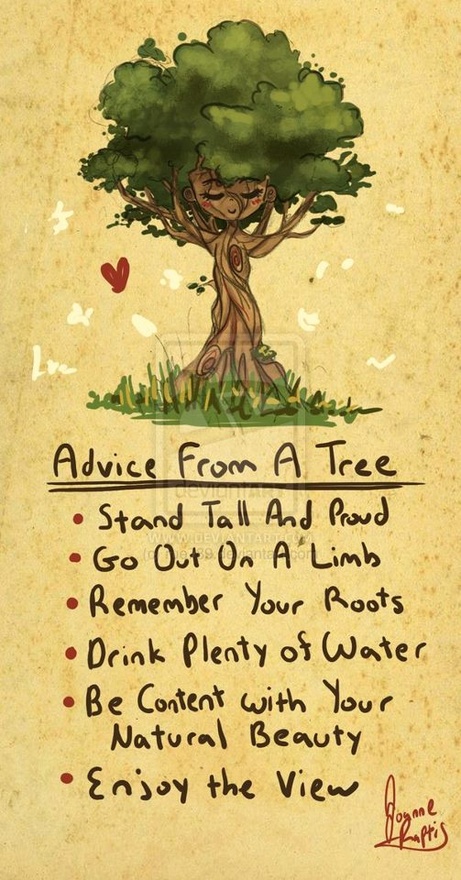 Advice From A Tree
Stand Tall And Proud
Go Out On A Limb
Remember Your Roots
Drink Plenty of Water
Be Content with Your
Natural Beauty
Enjoy the View
Joanne
Raptis
deviantART
WWW.DEVIANTART.COM